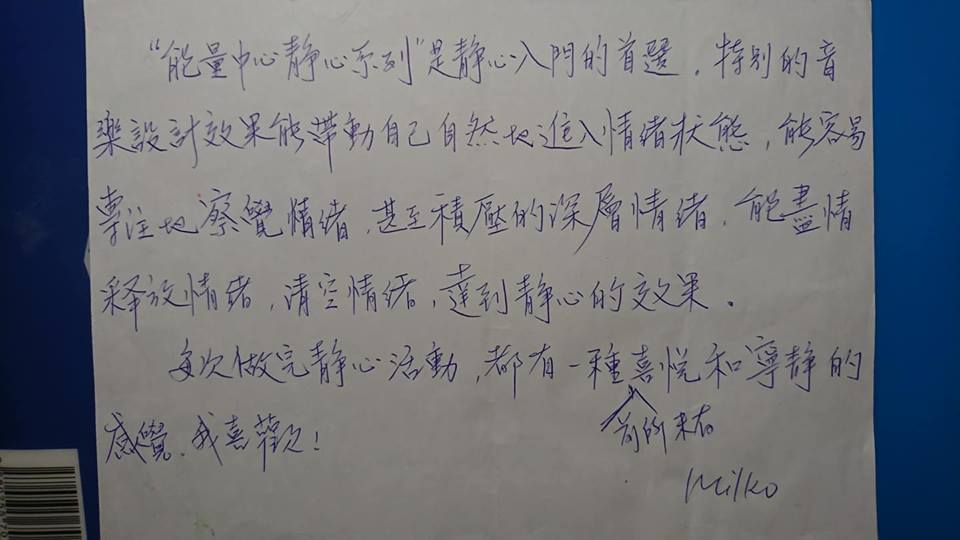 "能量中心静心系列"是静心入門的首選，特別的音
樂設計效果能帶動自己自然地進入情绪狀態，能容易
專注地察覺情绪，甚至積壓的深層情绪，能盡情
释放情绪，清空情绪，達到静心的效果。
每次做完静心活動，都有一種喜悦和寧静的
前所未有
感覺，我喜歡！
Milko